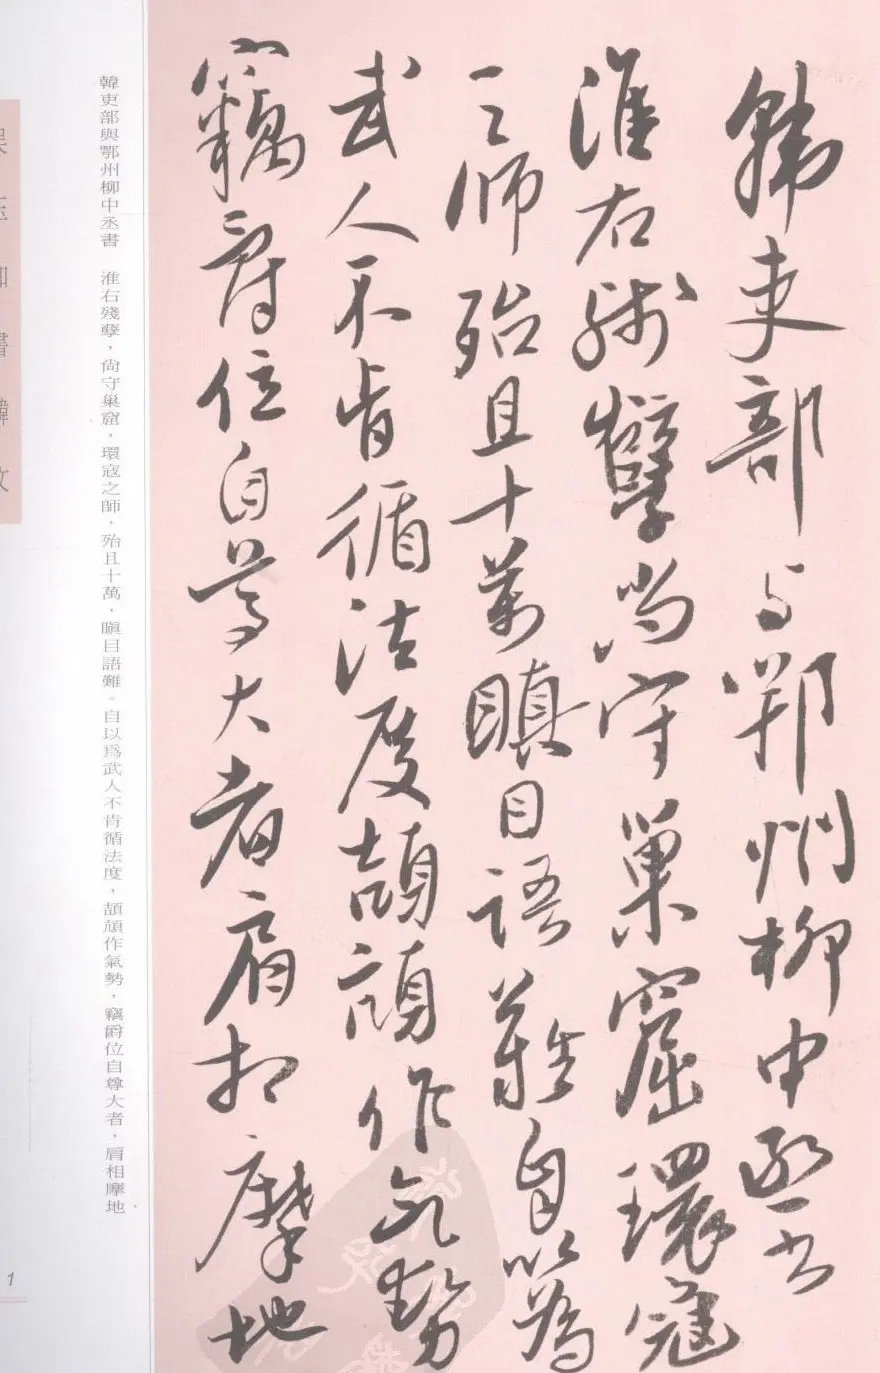 韓吏部与鄂州柳中丞書
淮右殘孽尚守巢窟環寇
之師殆且十萬瞋目語難自以為
武人不肯循法度頡頏作氣勢
竊爵位自尊大者肩相摩地
韓吏部與鄂州柳中丞書　淮右殘孽，尚守巢窟，環寇之師，殆且十萬，瞋目語難。自以爲武人不肯循法度，頡頏作氣勢，竊爵位自尊大者，肩相摩地
1